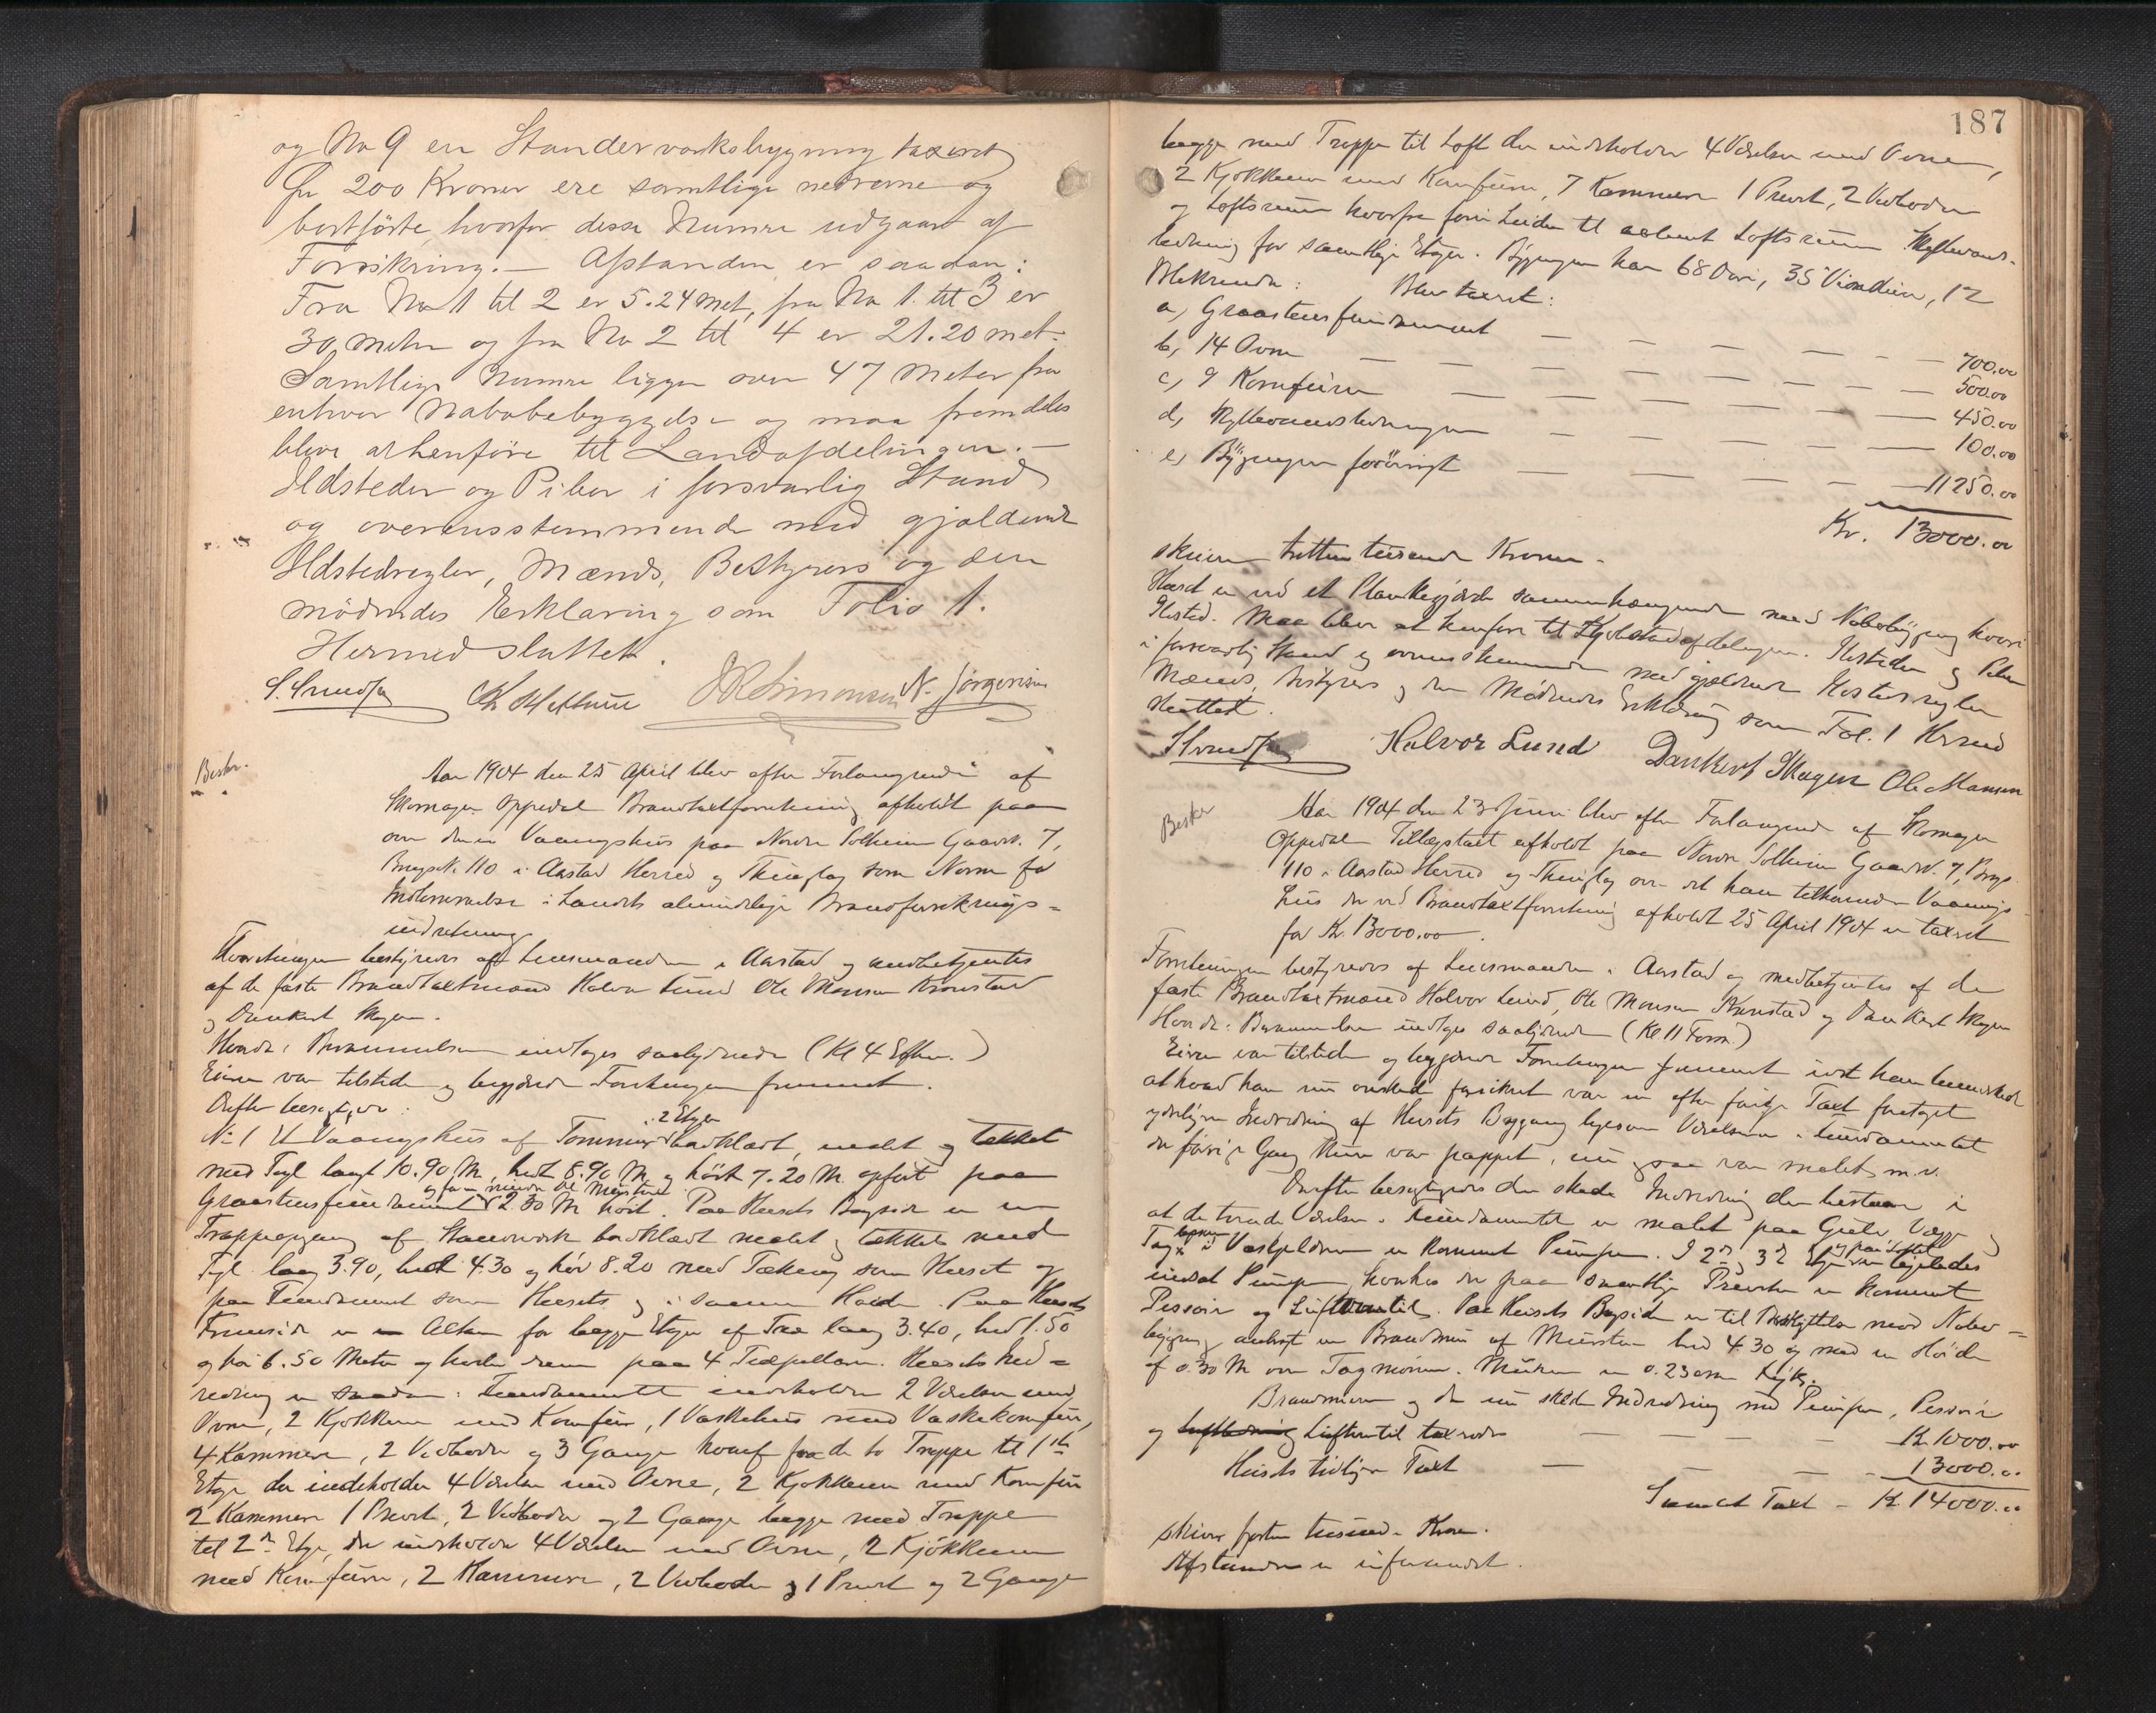 og No 9 en Standerværksbygning taxeret
for 200 Kroner ere samtlige nedrevne og
bortførte, hvorfor disse Numre udgaar af
Forsikring. — Afstanden er saadan:
Fra No 1 til 2 er 5.24 Met, fra No 1. til 3 er
30 Meter og fra No 2 til 4 er 21.20 met.
Samtlige Numre ligger over 47 Meter fra
enhver Nabobebyggelse og maa fremdeles
blive at henføre til Landafdelingen. —
Ildsteder og Piber i forsvarlig Stand
og overensstemmende med gjældende
Ildstedregler, Mænds, Bestyrers og den
mødendes Erklæring som Folio 1.
Hermed sluttet.
N. Jørgensen
Beskr.
Aar 1904 den 25 April blev efter Forlangende af
Skomager Oppedal Brandtaxtforretning afholdt paa
over dennes Vaaningshus paa Nordre Solheim Gaardsn. 7,
Brugsn. 110 i Aarstad Herred og Thinglag som Norm for
Indlemmelse i Landets almindelige Brandforsikrings-
indretning
Forretningen bestyredes af Lensmanden i Aarstad og medbetjentes
af de faste Brandtaxtmænd Halvor Lund Ole Monsen Kronstad
og Dankert Skagen.
Hvorda: Benævnelsen indtoges saalydende (Kl 4 Efterm.)
Eieren var tilstede og begjærede Forretningen fremmet.
Derefter besigtigedes:
i 2 Etager
No 1 Et Vaaningshus af Tømmer bordklædt, malet og tækket
med Tegl langt 10.90 M, bredt 8.90 M og høit 7.20 M opført paa
og for en mindre Del Mursten
Graastensfundament 2.30 M høit. Paa Husets Bagside er en
Trappeopgang af Standerværk bordklædt malet og tækket med
Tegl lang 3.90, bred 4.30 og høi 8.20 med Tækning som Huset og
paa Fundament som Husets og i samme Høide. Paa Husets
Fremside er en Altan for begge Etager af Træ lang 3.40, bred 1.50
og høi 6.50 Meter og hviler denne paa 4 Træpillarer. Husets Ind-
redning er saadan: Fundamentet indeholder 2 Værelser med
Ovne, 2 Kjøkkener med Komfur, 1 Vaskehus med Vaskekomfur,
4 Kammere, 2 Vedboder og 3 Gange hvoraf fra de to Trappe til 1ste
Etage der indeholder 4 Værelser med Ovne, 2 Kjøkkener med Komfur
2 Kammere 1 Privet, 2 Vedboder og 2 Gange begge med Trappe
til 2den Etage, der indeholder 4 Værelser med Ovne, 2 Kjøkkener
med Komfurer, 2 Kammere, 2 Vedboder og 1 Privet og 2 Gange
187
begge med Trappe til Loft der indeholder 4 Værelser med Ovne,
2 Kjøkkener med Komfurer, 7 Kammere 1 Privet, 2 Vedboder
og Loftsrum hvorfra fører Leider til aabent Loftsrum Skyllevands-
ledning for samtlige Etager. Bygningen har 68 Døre, 35 Vinduer, 12
Blev taxeret:
a, Graastensfundament — 700.00
b, 14 Ovne — 500.00
c, 9 Komfurer — 450.00
d, Skyllevandsledningen — 100.00
e, Bygningen forøvrigt — 11250.00
Kr. 13000.00
skriver tretten tusende Kroner.
Huset er ved et Plankegjærde sammenhængende med Nabobygning hvori
Ildsted. Maa blive at henføre til Kjøbstadafdelingen. Ildsteder og Piber
i forsvarlig Stand og overensstemmende med gjældende Ildstedsregler
Mænds, Bestyrers og den Mødendes Erklæring som Fol. 1 Hermed
sluttet.
Halvor Lund Dankert Skagen Ole Monsen
Beskr
Aar 1904 den 23 Juni blev efter Forlangende af Skomager
Oppedal Tillægstaxt afholdt paa Nordre Solheim Gaardsn. 7, Brugsn.
110 i Aarstad Herred og Thinglag over det ham tilhørende Vaanings-
hus der ved Brandtaxtforretning afholdt 25 April 1904 er taxeret
for Kr. 13000.00.
Forretningen bestyredes af Lensmanden i Aarstad og medbetjentes af de
faste Brandtaxtmænd Halvor Lund, Ole Monsen Kronstad og Dankert Skagen
Hvorda: Benævnelsen indtoges saalydende (Kl 11 Form.)
Eieren var tilstede og begjærede Forretningen fremmet idet han bemærkede
at hvad han nu ønskede forsikret var en efter forrige Taxt foretaget
yderligere Indredning af Husets Bygning ligesom Værelserne i Fundamentet
der forrige Gang kun var pappet, nu ogsaa var malet m.v.
Derefter besigtigedes den skede Indredning der bestaar i
at de tvende Værelser i Fundamentet er malet paa Gulv, Vægge og
Tag i Vaskekjelderen er kommet Pumpe. I 2den og 3die Etage og paa Loftet er ligeledes
indsat Pumpe, hvorhos der paa samtlige Priveter er kommet
Pissoir og Luftventil. Paa Husets Bagside er til Beskyttelse mod Nabo-
bygning anbragt en Brandmur af Mursten bred 4.30 og med en Høide
af 0.30 M over Tagmønen. Muren er 0.23 cm tyk.
Brandmuren og den nu skede Indredning med Pumper, Pissoir
og Luftledning Luftventil taxeredes — Kr. 1000.00
Husets tidligere Taxt — 13000.00
Samlet Taxt — Kr. 14000.00
skriver fjorten tusinde Kroner.
Afstanden er uforandret.